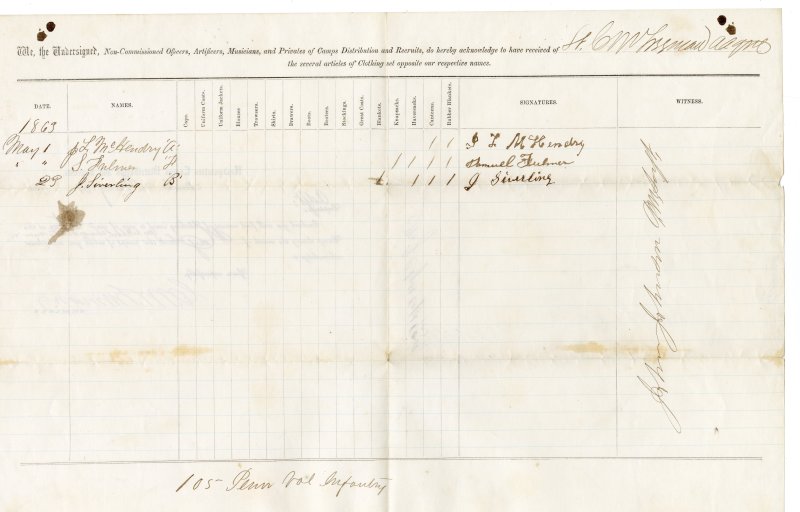 We, the Undersigned, Non-Commissioned Officers, Artificers, Musicians, and Privates of Camps Distribution and Recruits, do hereby acknowledge to have received of
the several articles of Clothing set opposite our respective names.
DATE. NAMES. Caps. Uniform Coats. Uniform Jackets. Blouses Trowsers. Shirts. Drawers. Boots. Bootees. Stockings. Great Coats. Blankets. Knapsacks. Haversacks. Canteens. Rubber Blankets. SIGNATURES. WITNESS.
1863
May 1 J L McHendry A 1 1 J L McHendry
" " S. Fulmer H 1 1 1 1 1 Samuel Fulmer
29 J. Siverling B 1. 1 1 1 J Siverling
John Johnson
105 Penn Vol Infantry